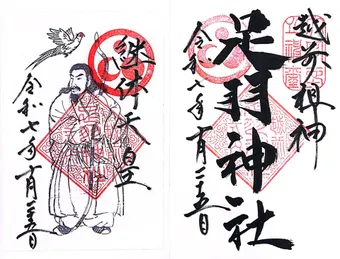 越前祖神
足羽神社
令和七年十月二十五日
継体天皇
令和七年十月二十五日